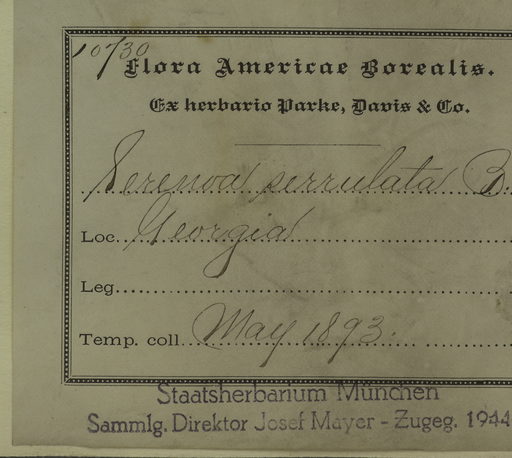 10730
Flora Americae Borealis.
Ex herbario Parke, Davis & Co.
Serenoa serrulata B.
Loc. Georgia
Leg.
Temp. coll. May 1893.
Staatsherbarium München
Sammlg. Direktor Josef Mayer - Zugeg. 1944